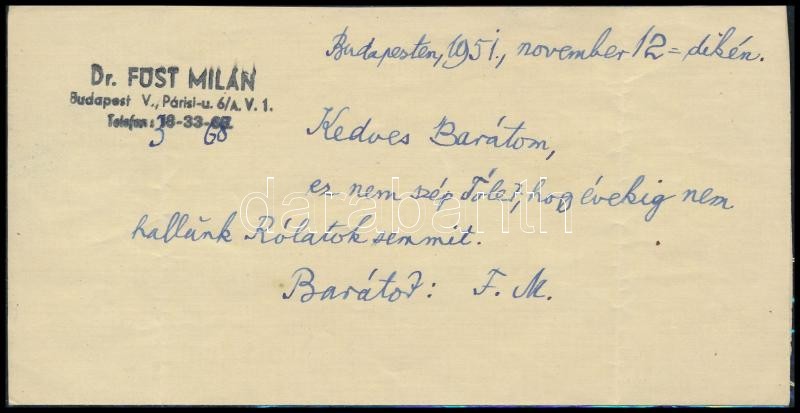 Budapesten, 1951., november 12=dikén.
Dr. FÜST MILÁN
Budapest V., Párisi-u. 6/A. V. 1.
Telefon: 18-33-
3 68
Kedves Barátom,
ez nem szép Tőled, hogy évekig nem
hallunk Rólatok semmit.
Barátod: F. M.
darabanth